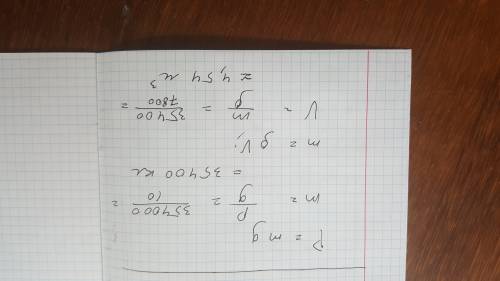 P = mg
m = P/g = 354000/10 =
= 35400 кг
m = ρV;
V = m/ρ = 35400/7800 =
≈ 4,54 м³